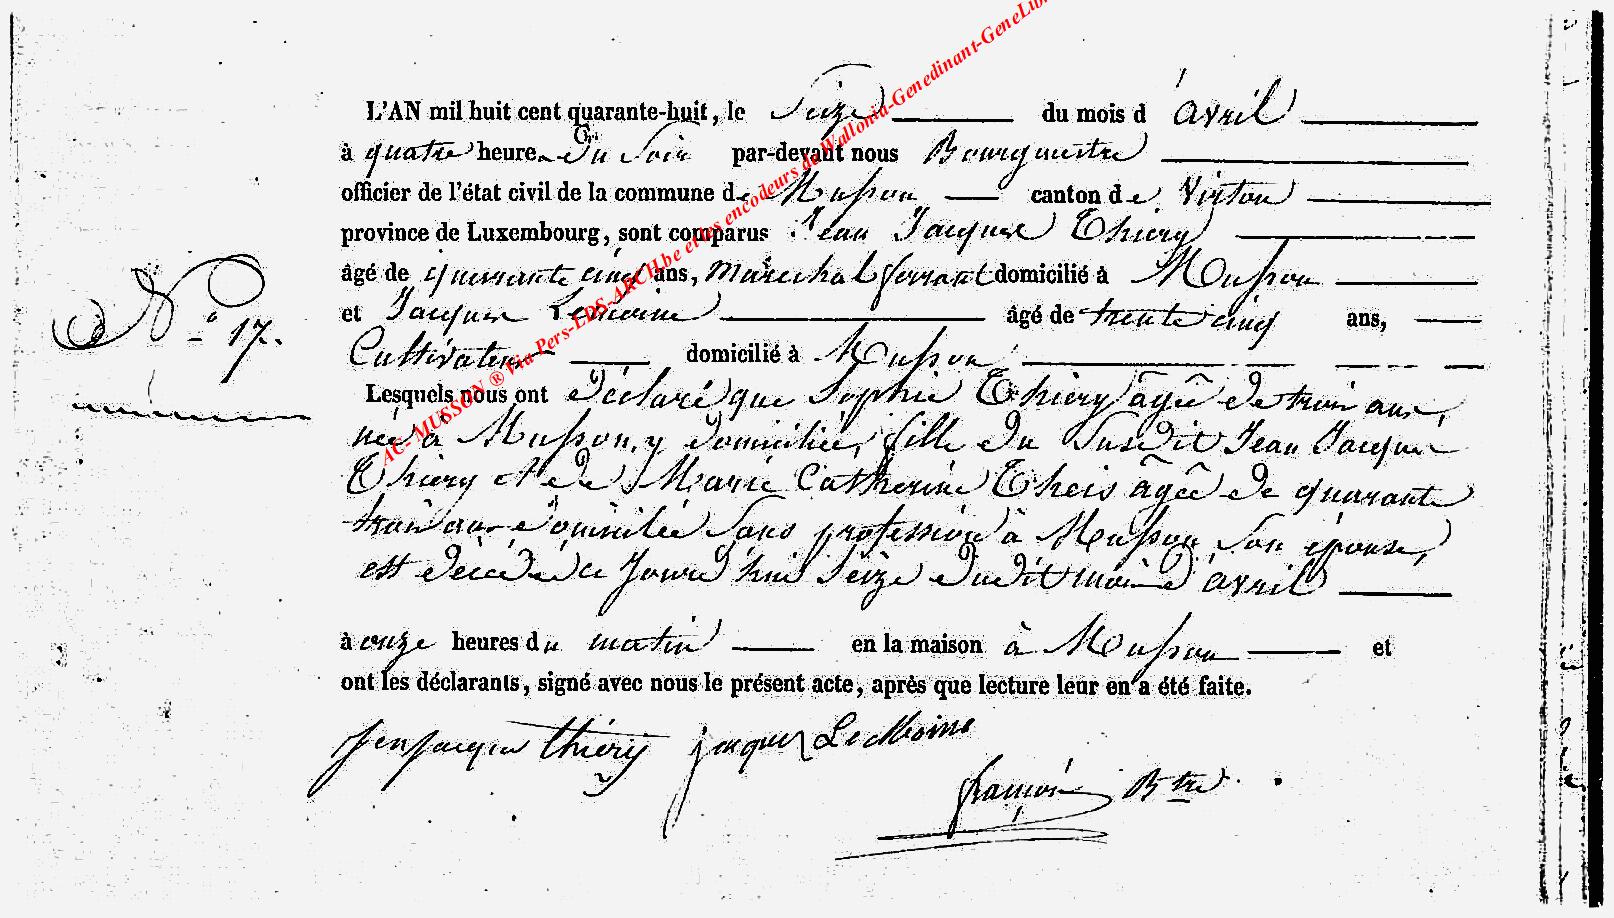 AC - MUSSON ® Via Pers-LDS-ARCH.be et les encodeurs de Wallonia-Genedinant-GeneLib
L'AN mil huit cent quarante-huit, le Seize du mois d'avril
à quatre heures du Soir par-devant nous Bourgmestre
officier de l'état civil de la commune de Musson canton de Virton
province de Luxembourg, sont comparus Jean Jacques Thiéry
âgé de quarante cinq ans, Maréchal ferrant domicilié à Musson
N.° 17.
et Jacques Lemoine âgé de trente cinq ans,
Cultivateur domicilié à Musson
Lesquels nous ont déclaré que Sophie Thiery âgée de trois ans,
née à Musson, y domiciliée, fille du Susdit Jean Jacques
Thiery et de Marie Catherine Theis âgée de quarante
trois ans domiciliée Sans profession à Musson, Son épouse,
est décédée ce Jourd'hui Seize dudit mois d'avril
à onze heures du matin en la maison à Musson et
ont les déclarants, signé avec nous le présent acte, après que lecture leur en a été faite.
jean jacques thiéry jacques Le Moine
Btre